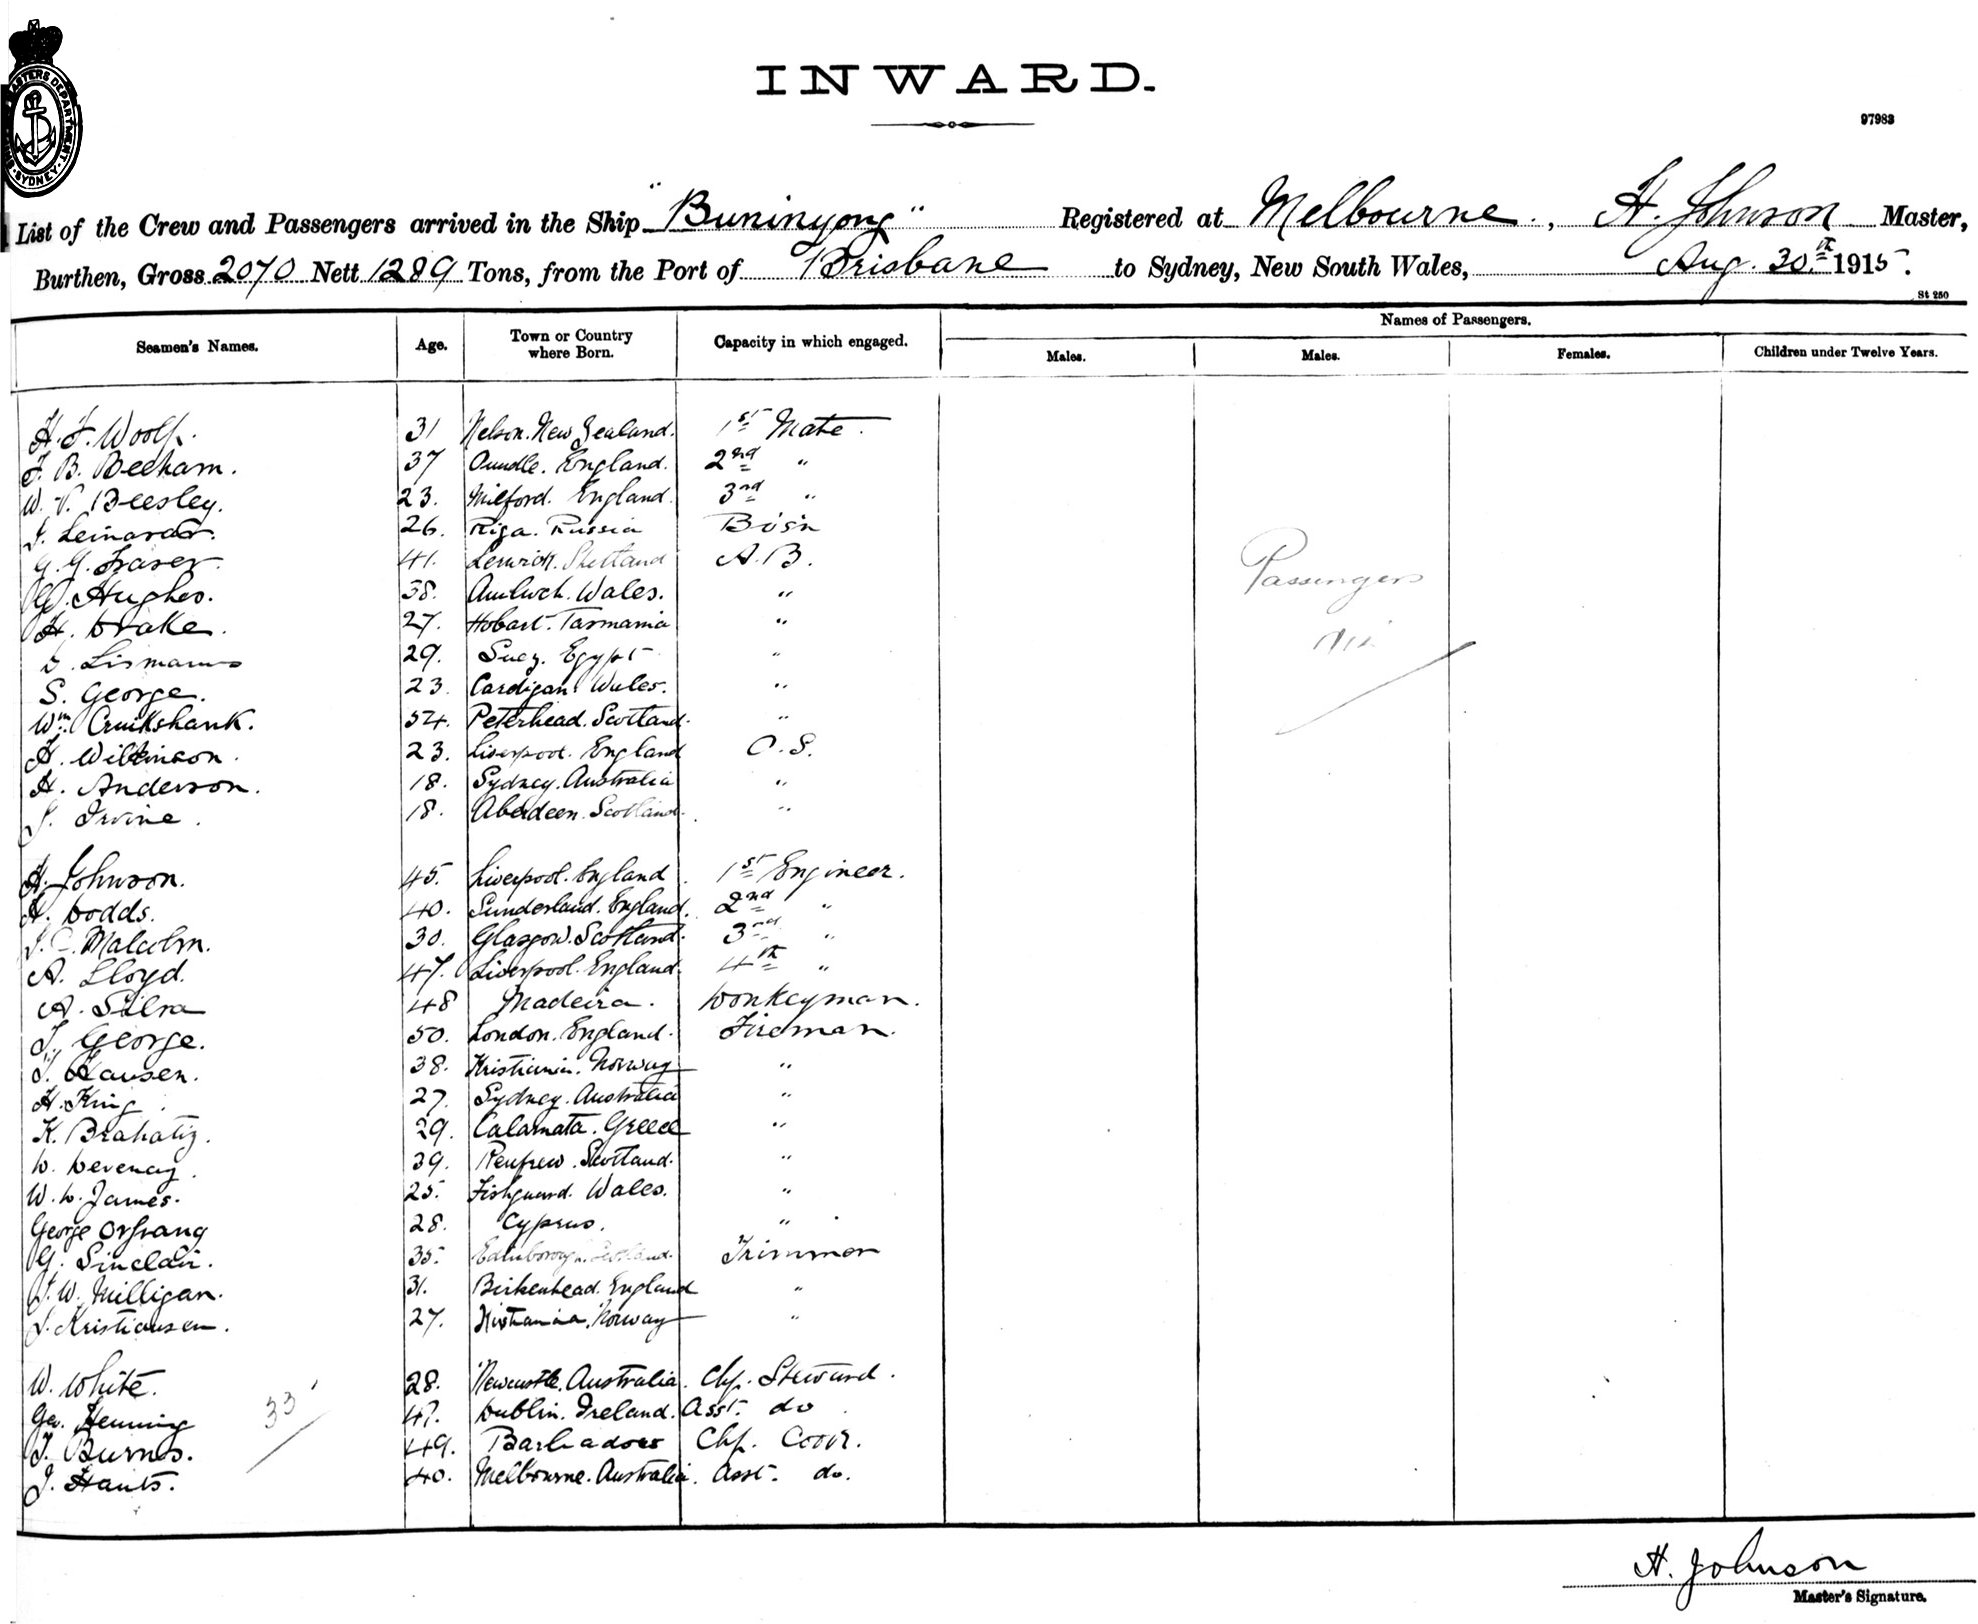 INWARD.
97983
SHIPPING MASTERS DEPARTMENT SYDNEY
List of the Crew and Passengers arrived in the Ship "Buninyong" Registered at Melbourne, H. Johnson Master,
Burthen, Gross 2070 Nett 1289 Tons, from the Port of Brisbane to Sydney, New South Wales, Aug. 30th 1915.
St 250
Names of Passengers.
Seamen's Names. Age. Town or Country where Born. Capacity in which engaged. Males. Males. Females. Children under Twelve Years.
H. F. Woolf. 31 Nelson. New Zealand. 1st Mate.
F. B. Beeham. 37 Oundle. England. 2nd "
W. V. Beesley. 23. Milford. England. 3rd "
J. 26. Riga. Russia Bos'n
G. G. Fraser. 41. Lerwick. Shetland A.B.
W. Hughes. 38. Amlwch. Wales. "
H. Drake. 27. Hobart. Tasmania "
29. Suez. Egypt "
S. George. 23. Cardigan. Wales. "
Wm. Cruikshank. 54. Peterhead. Scotland. "
H. Wilkinson. 23. Liverpool. England O.S.
H. Anderson. 18. Sydney. Australia "
J. Irvine. 18. Aberdeen. Scotland. "
Passengers
Nil
H. Johnson. 45. Liverpool. England. 1st Engineer.
H. Dodds. 40. Sunderland. England. 2nd "
J. C. Malcolm. 30. Glasgow. Scotland. 3rd "
A. Lloyd. 47. Liverpool. England. 4th "
A. Silva 48 Madeira. Donkeyman.
J. George. 50. London. England. Fireman.
J. Hansen. 38. Kristiania. Norway "
H. King. 27. Sydney. Australia "
K. Brahatiz. 29. Calamata. Greece "
D. Devenay. 39. Renfrew. Scotland. "
W. D. James. 25. Fishguard. Wales. "
George 28. Cyprus. "
G. Sinclair. 35. Edinborough. Scotland. Trimmer
J. W. Milligan. 31. Birkenhead. England "
J. Kristiansen. 27. Kistiania. Norway "
W. White. 28. Newcastle. Australia. Chf. Steward.
Geo. Henning 47. Dublin. Ireland. Asst. do
J. Burns. 49. Barbadoes Chf. Cook.
J. Hants. 40. Melbourne. Australia. Asst. do.
33
H. Johnson
Master's Signature.